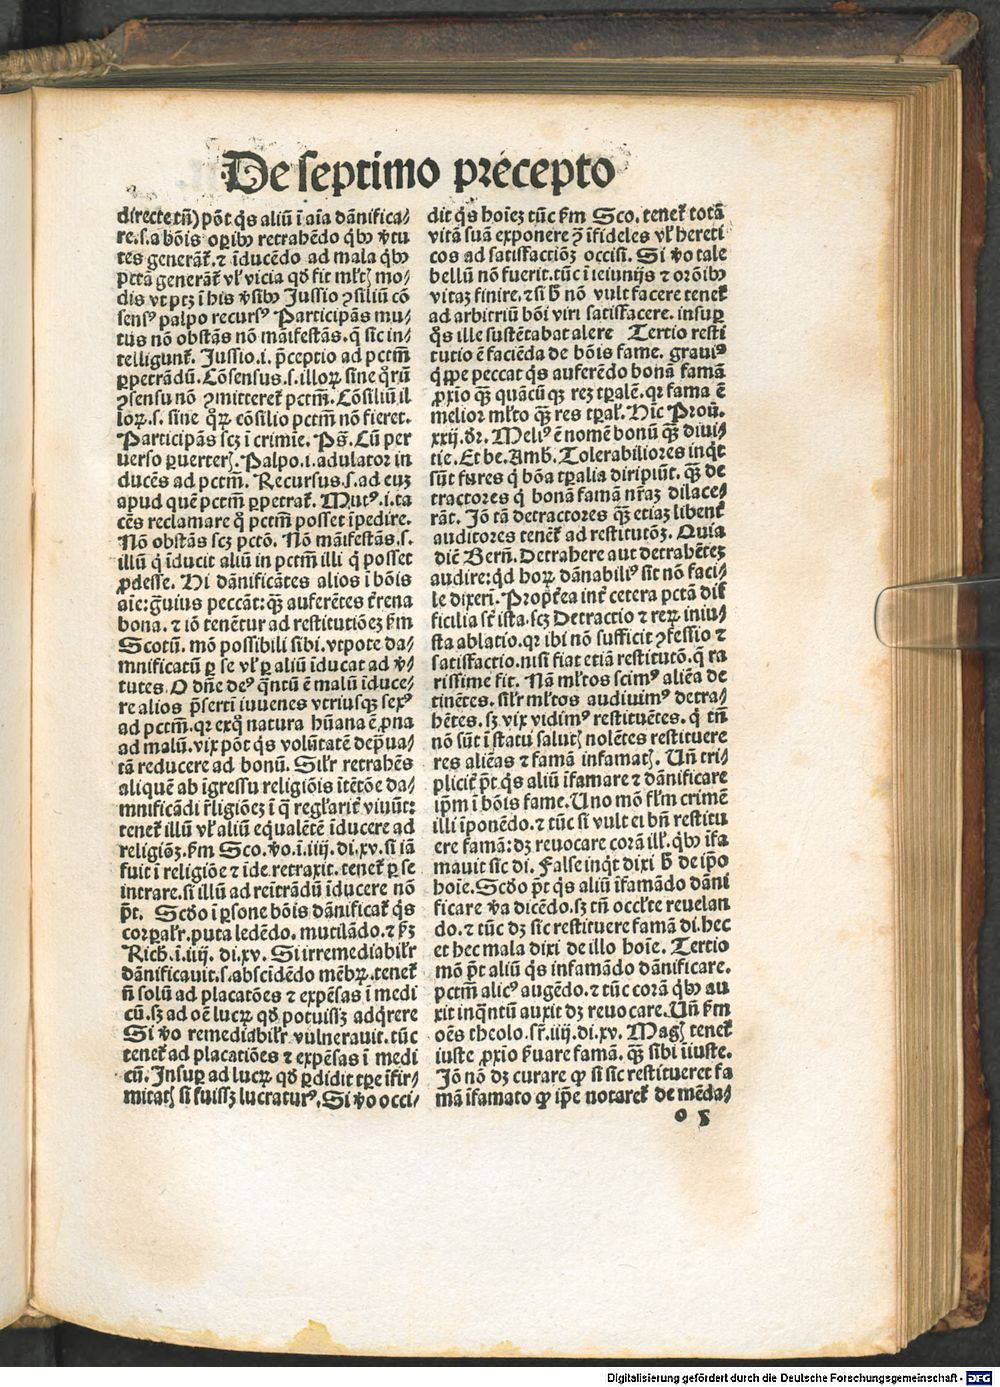 De septimo precepto
directe tñ) põt q̃s aliũ ĩ aĩa dãnifica/
re.s.a bõis oꝑibꝰ retrahẽdo q̃bꝰ v̾tu
tes generãt᷑. ⁊ ĩducẽdo ad mala q̃bꝰ
pctã generãt᷑ vl᷑ vicia qđ fit ml᷑tꝭ mo/
dis vt ptꝫ ĩ his v̾sibꝰ Jussio ꝯsiliũ cõ
sensꝰ palpo recursꝰ Participãs mu/
tus nõ obstãs nõ mãifestãs. q̃ sic in/
telligunt᷑. Jussio.i. p̃ceptio ad pctm̃
ꝑpetrãdũ. Cõsensus.s.illoꝝ sine q̊rũ
ꝯsensu nõ ꝯmitteret᷑ pctm̃. Cõsiliũ il
loꝝ.s. sine q̊ꝝ cõsilio pctm̃ nõ fieret.
Participãs scꝫ ĩ crimĩe. Ps̃. Cũ per
uerso ꝑuerterꝭ. Palpo.i.adulator in
ducẽs ad pctm̃. Recursus.s.ad euꝫ
apud quẽ pctm̃ ꝑpetrat᷑. Mutꝰ.i.ta
cẽs reclamare q̊ pctm̃ posset ĩpedire.
Nõ obstãs scꝫ pctõ. Nõ mãifestãs.s.
illũ q̇ ĩducit aliũ in pctm̃ illi q̇ posset
ꝓdesse. Hi dãnificãtes alios ĩ bõis
aĩe: g̃uius peccãt: q̃ꝫ auferẽtes t᷑rena
bona. ⁊ iõ tenẽtur ad restitutiõeꝫ ẜm
Scotũ. mõ possibili sibi. vtpote da/
mnificatũ ꝑ se vl᷑ ꝑ aliũ ĩducat ad v̾/
tutes. O dñe deꝰ q̃ntũ ẽ malũ ĩduce/
re alios p̃serti iuuenes vtriusqꝫ sexꝰ
ad pctm̃. qꝛ exq̊ natura hũana ẽ ꝓna
ad malũ. vix põt q̃s volũtatẽ dep̃ua/
tã reducere ad bonũ. Sil᷑r retrahẽs
aliquẽ ab ĩgressu religiõis ĩtẽtõe da/
mnificãdi r̃ligiõeꝫ ĩ q̃ regl᷑arit᷑ viuũt:
tenet᷑ illũ vl᷑ aliũ eq̃ualẽtẽ ĩducere ad
religiõꝫ. ẜm Sco. v̊o.ĩ.iiij. di.xv. si iã
fuit ĩ religiõe ⁊ ĩde retraxit. tenet᷑ ꝑ se
intrare. si illũ ad reĩtrãdũ ĩducere nõ
p̃t. Scđo ĩ ꝑsone bõis dãnificat᷑ q̃s
corꝑal᷑r. puta ledẽdo. mutilãdo. ⁊ ẜꝫ
Rich̃. ĩ.iiij. di.xv. Si irremediabil᷑r
dãnificauit.s.abscidẽdo mẽbꝝ. tenet᷑
ñ solũ ad placatões ⁊ expẽsas ĩ medi
cũ. sꝫ ad oẽ lucꝝ qđ potuissꝫ adq̃rere
Si v̊o remediabil᷑r vulnerauit. tũc
tenet᷑ ad placatiões ⁊ expẽsas ĩ medi
cũ. Insuꝑ ad lucꝝ qđ ꝑdidit tꝑe ĩfir/
mitatꝭ si fuissꝫ lucraturꝰ. Si v̊o occi/
dit q̃s hoĩeꝫ tũc ẜm Sco. tenet᷑ totã
vitã suã exponere ꝯ̃ ĩfideles vl᷑ hereti
cos ad satisfactiõꝫ occisi. Si v̊o tale
bellũ nõ fuerit. tũc ĩ ieiunijs ⁊ orõibꝰ
vitaꝫ finire. ⁊ si ħ nõ vult facere tenet᷑
ad arbitriũ boni viri satisfacere. insuꝑ
q̊s ille sustẽtabat alere Tertio resti
tutio ẽ faciẽda de bõis fame. grauiꝰ
q̇ppe peccat q̃s auferẽdo bonã famã
ꝓxio q̃ꝫ quãcũqꝫ reꝫ tꝑalẽ. qꝛ fama ẽ
melior ml᷑to q̃ꝫ res tꝑal᷑. Hĩc Prou̾.
xxij. dr̃. Meliꝰ ẽ nomẽ bonũ q̃ꝫ diui/
tie. Et be. Amb̃. Tolerabiliores inq̇t
sũt fures q̇ bõa tꝑalia diripiũt. q̃ꝫ de
tractores q̇ bonã famã nr̃aꝫ dilace/
rãt. Jõ tã detractores q̃ꝫ etiaꝫ libent᷑
auditores tenet᷑ ad restitutõꝫ. Quia
diẽ Berñ. Detrahere aut detrahẽteꝫ
audire: qd hoꝝ dãnabiliꝰ sit nõ faci/
le dixeri. Propt᷑ea int᷑ cetera pctã dif
ficilia st᷑ ista. scꝫ Detractio ⁊ reꝝ iniu/
sta ablatio. qꝛ ibi nõ sufficit ꝯfessio ⁊
satisfactio. nisi fiat etiã restitutõ. q̃ ra
rissime fit. Nã ml᷑tos scimꝰ aliẽa de
tinẽtes. sil᷑r ml᷑tos audiuimꝰ detra/
hẽtes. sꝫ vix vidimꝰ restituẽtes. q̇ tñ
nõ sũt ĩ statu salutꝭ nolẽtes restituere
res aliẽas ⁊ famã infamatꝭ. Uñ tri/
plicit᷑ p̃t q̃s aliũ ĩfamare ⁊ dãnificare
ip̃m ĩ bõis fame. Uno mõ fl᷑m crimẽ
illi ĩponẽdo. ⁊ tũc si vult ei bñ restitu
ere famã: dꝫ reuocare corã ill᷑. q̃bꝰ ĩfa
mauit sic di. False inq̇t dixi ħ de ip̃o
hoĩe. Scđo p̃t q̃s aliũ ĩfamãdo dãni
ficare v̾a dicẽdo. sꝫ tñ occl᷑te reuelan
do. ⁊ tũc dꝫ sic restituere famã di. hec
et hec mala dixi de illo hoĩe. Tertio
mõ p̃t aliũ q̃s infamãdo dãnificare.
pctm̃ alicꝰ augẽdo. ⁊ tũc corã q̃bꝰ au
xit inq̃ntũ auxit dꝫ reuocare. Uñ ẜm
oẽs theolo. sr̃.iiij.di.xv. Mag̃ꝭ tenet᷑
iuste ꝓxio ẜuare famã. q̃ꝫ sibi ĩiuste.
Jõ nõ dꝫ curare ꝙ si sic restitueret fa
mã ĩfamato ꝙ ip̃e notaret᷑ de mẽda/
o 5
Digitalisierung gefördert durch die Deutsche Forschungsgemeinschaft - DFG